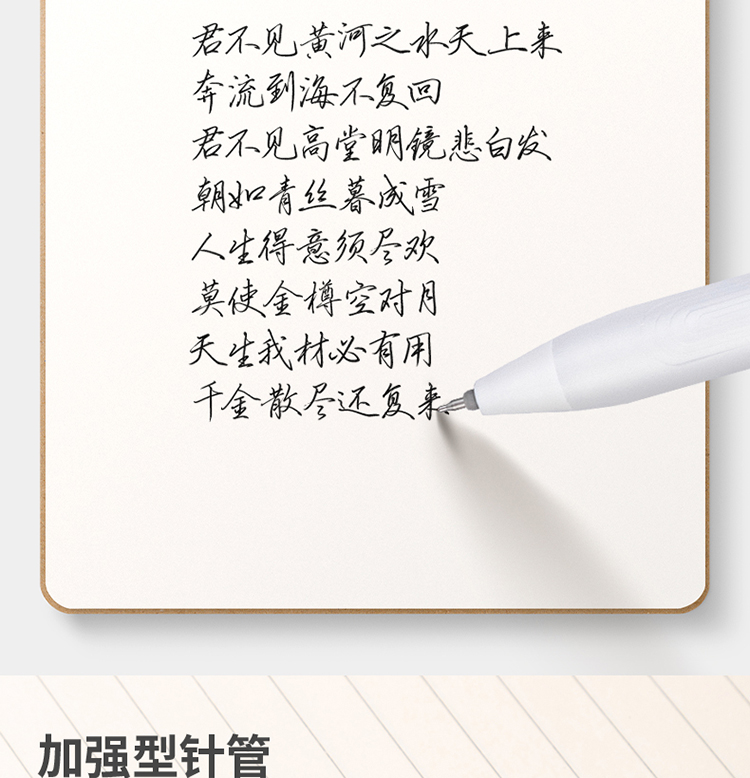 君不见黄河之水天上来
奔流到海不复回
君不见高堂明镜悲白发
朝如青丝暮成雪
人生得意须尽欢
莫使金樽空对月
天生我材必有用
千金散尽还复来
加强型针管